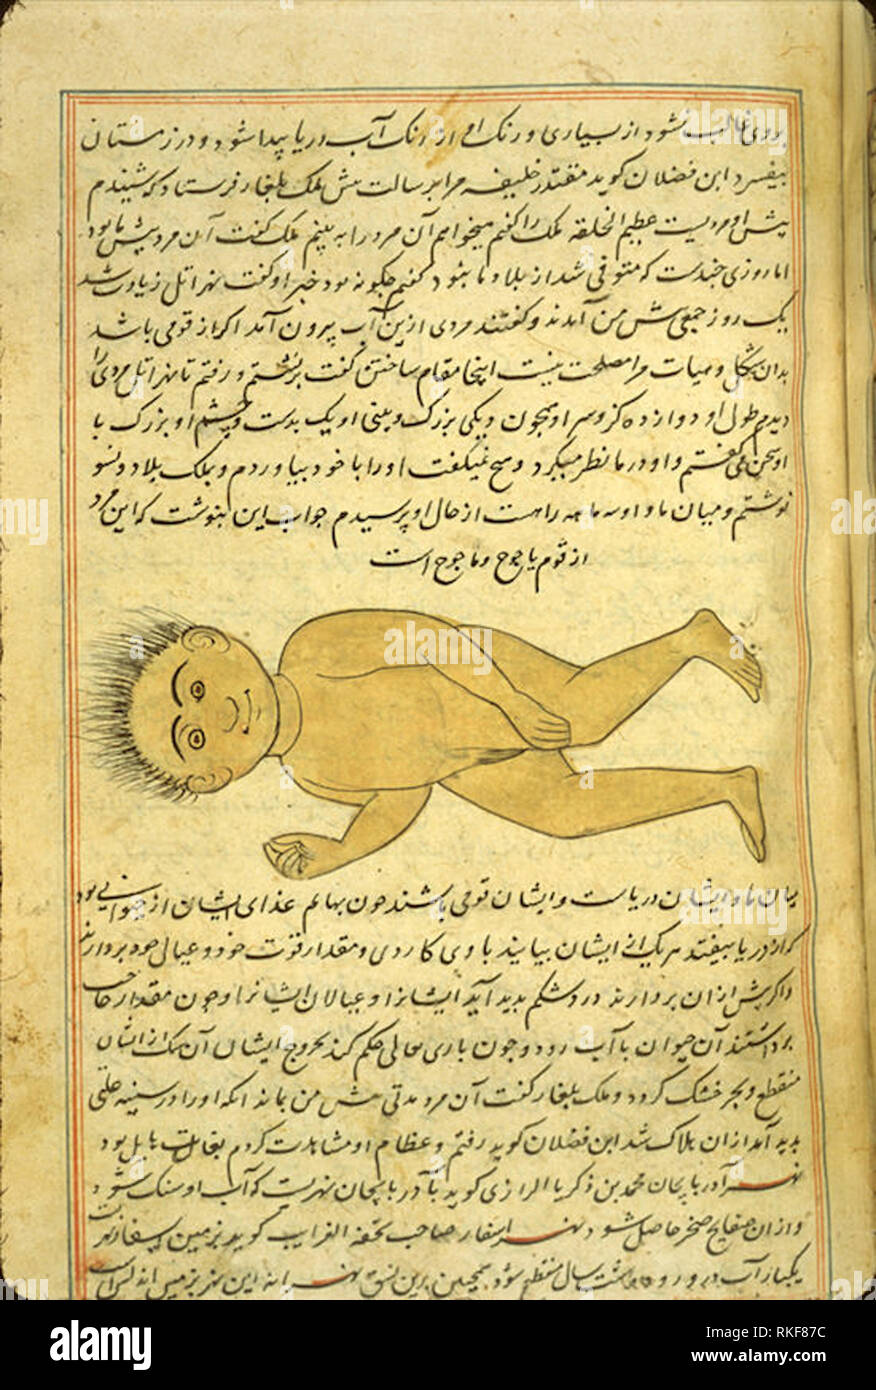 غالب نشود از بسیاری و رنک او از رنک آب دریا پیدا شود و در زمستان
بیفسرد ابن فضلان کوید مقتدر خلیفه مرا برسالت پیش ملک بلغار فرستاد که شنیدم
پیش او مردیست عظیم الخلقه ملک را کفتم میخواهم آن مرد را به بینم ملک کفت آن مرد پیش ما بود
اما روزی چندست که متوفی شد از بلاد ما نبود کفتم چکونه بود خبر او کفت نهر اتل زیادت شد
یک روز جمعی پیش من آمدند و کفتند مردی ازین آب بیرون آمد اکر از قومی باشد
بدان شکل و هیات مرا مصلحت نیست اینجا مقام ساختن کفت برنشستم و رفتم تا نهر اتل مردی را
دیدم طول او دوازده کز و سر او همچون دیکی بزرک و بینی او یک بدست و چشم او بزرک با
او سخن می کفتم و او در ما نظر میکرد و هیچ نمیکفت او را با خود بیاوردم و بملک بلاد
نوشتم و میان ما و او سه ماهه راهست از حال او پرسیدم جواب این نبوشت که این مرد
از قوم یاجوج و ماجوج است
میان ما و ایشان دریاست و ایشان قومی باشند چون بهایم غذای ایشان از حیوانی بود
که از دریا بیفتد هر یک از ایشان بیایند با وی کاردی و مقدار قوت خود و عیال خود بردارند
و اکر بیش از آن بردارند درد شکم بدید آید ایشانرا و عیالان ایشانرا و چون مقدار حاجت
برداشتند آن حیوان با آب رود و چون باری تعالی حکم کند بخروج ایشان آن سمک از ایشان
منقطع و بحر خشک کردد و ملک بلغار کفت آن مرد مدتی پیش من بماند انکه او را در سینه علتی
بدید آمد از آن هلاک شد ابن فضلان کوید رفتم و عظام او مشاهدت کردم بغایت هایل بود
نهر آذربایجان محمد بن زکریا الرازی کوید بآذربایجان نهریست که آب او سنک شود
و از آن صفایح صخر حاصل شود نهر اسفار صاحب تحفة الغرایب کوید بزمین اسفار نهریست
یکبار آب درو رود هشت سال منقطع شود همچنین برین نسق نهر
alamy
Image ID: RKF87C
www.alamy.com